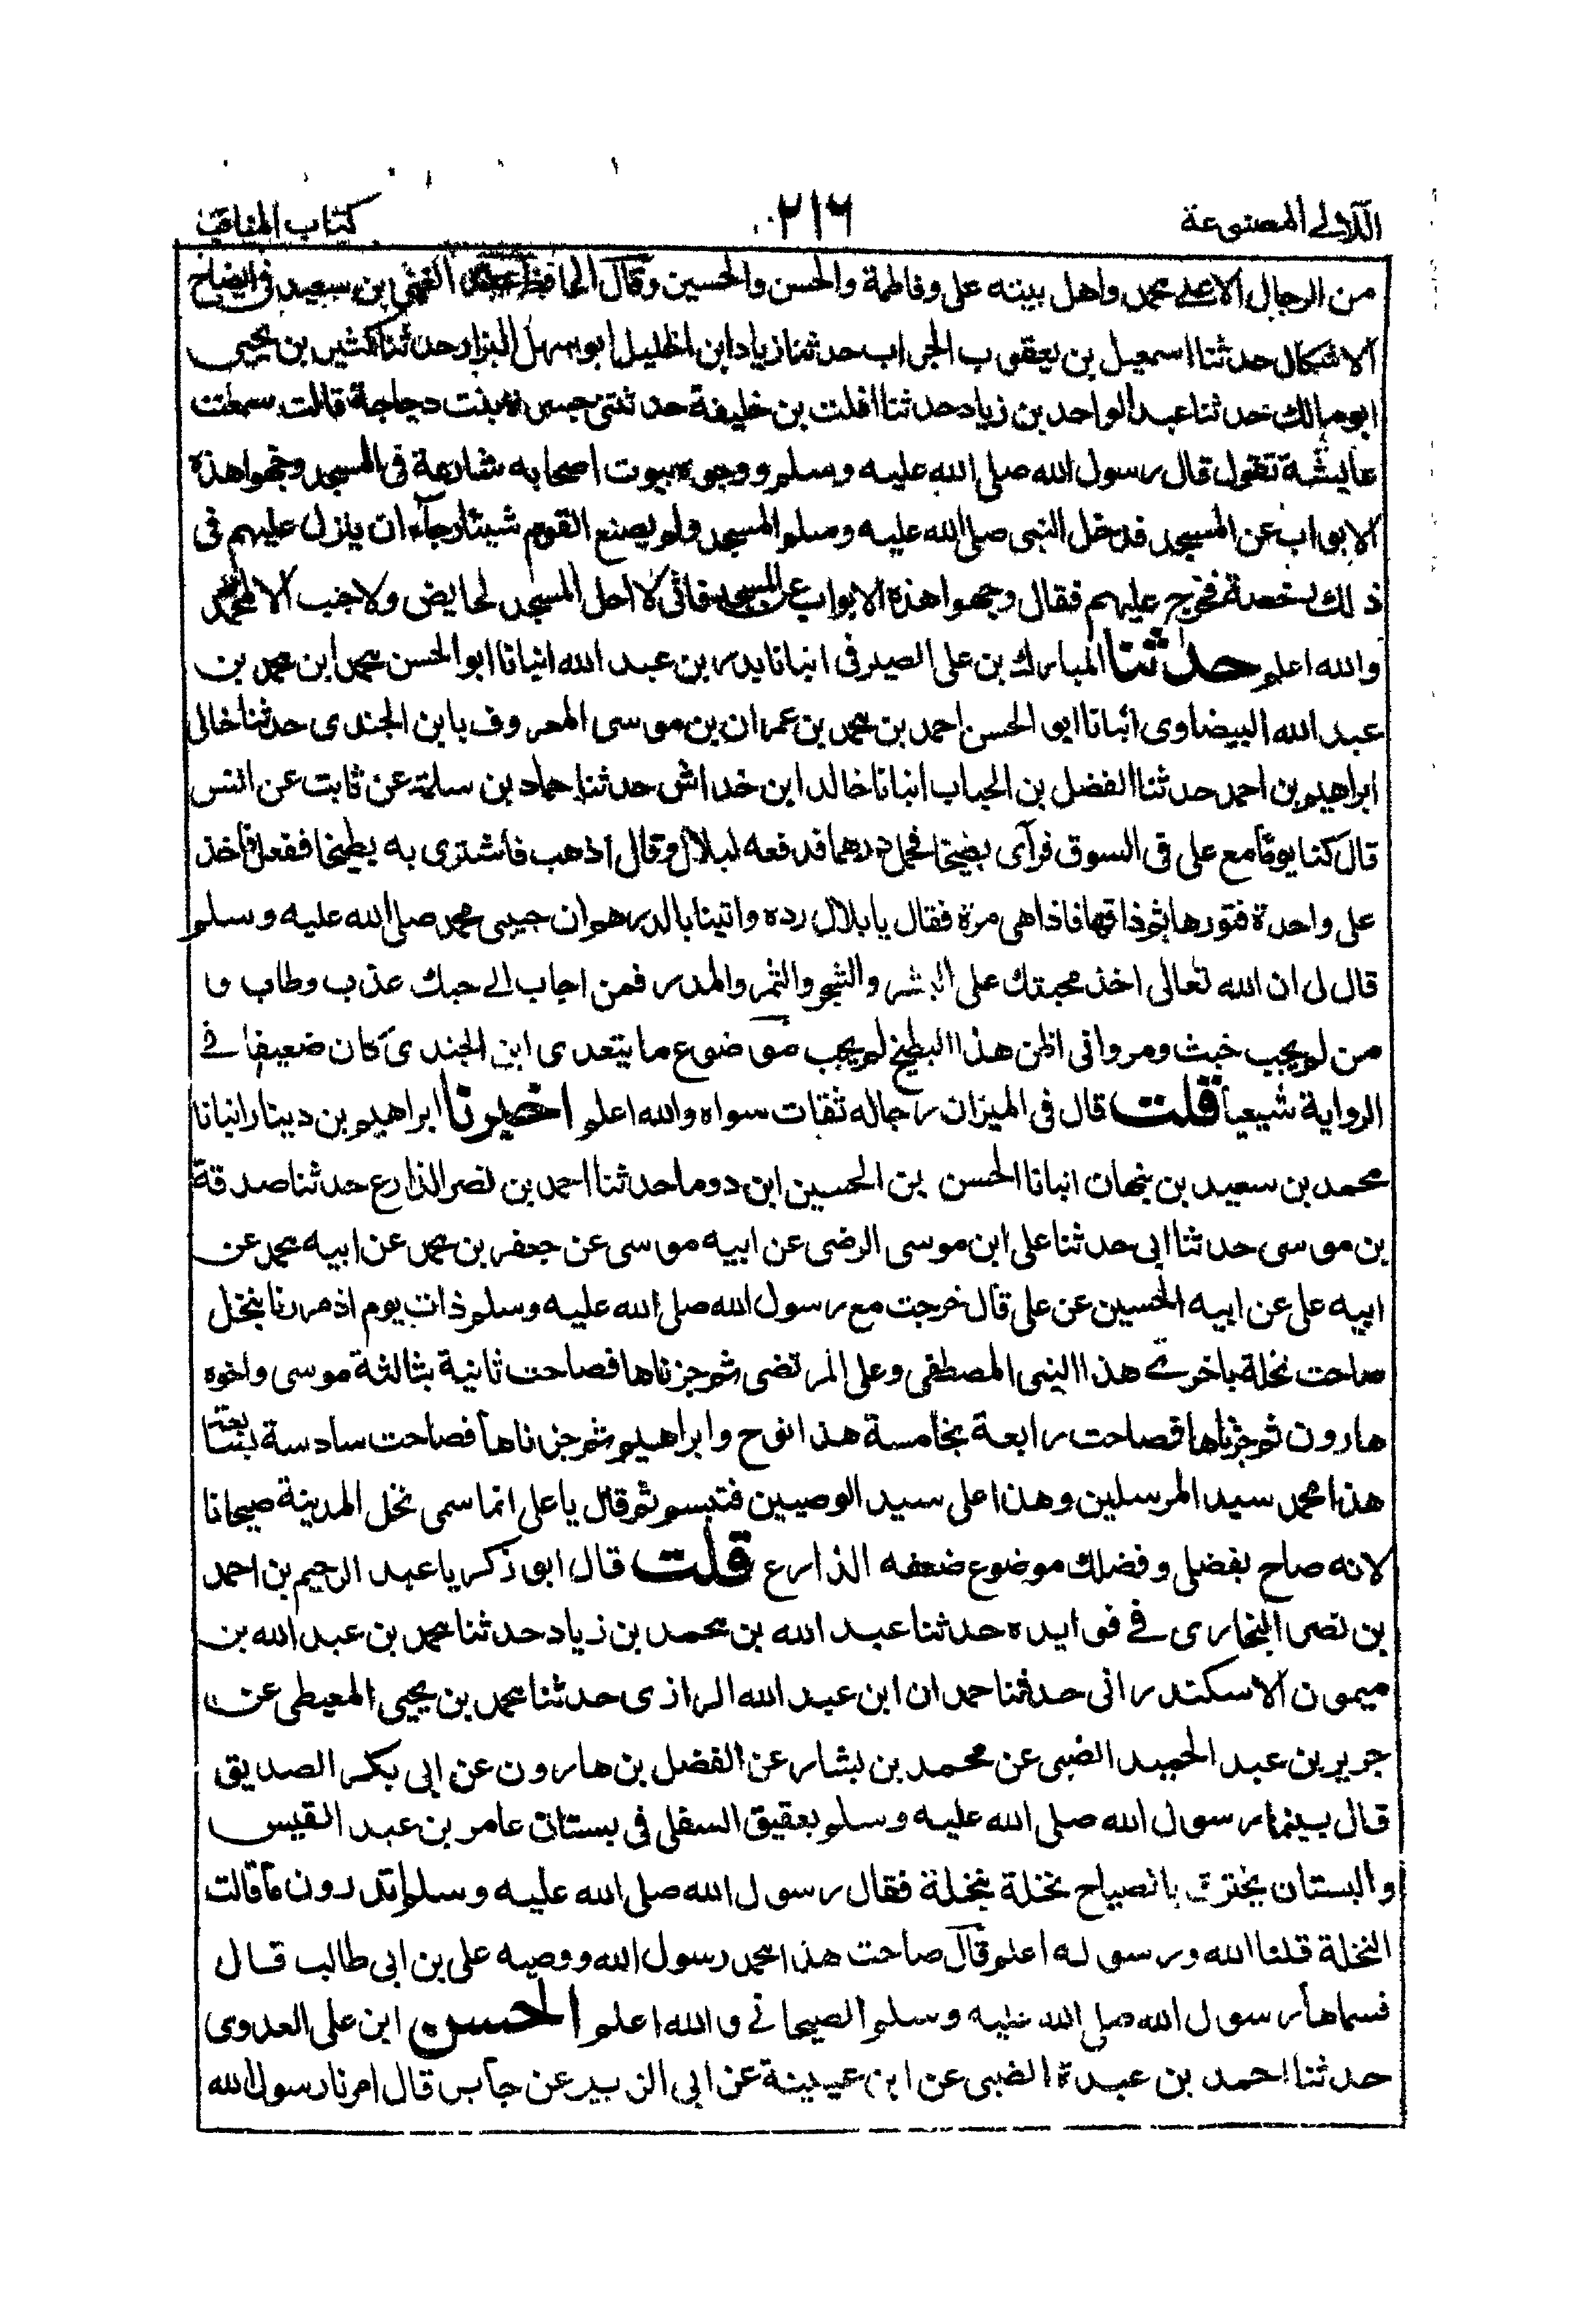 اللآلى المصنوعة ٢١٦ كتاب المناقب
من الرجال الا على محمد واهل بيته على وفاطمة والحسن والحسين وقال الحافظ عبد الغنى بن سعيد فى ايضاح
الاشكال حدثنا اسمعيل بن يعقوب الجراب حدثنا زياد ابن الخليل ابو سهل البزار حدثنا كثير بن يحيى
ابو مالك حدثنا عبد الواحد بن زياد حدثنا افلت بن خليفة حدثتنى جسرة بنت دجاجة قالت سمعت
عايشة تقول قال رسول الله صلى الله عليه وسلم ووجوه بيوت اصحابه شارعة فى المسجد وجهوا هذه
الابواب عن المسجد فدخل النبى صلى الله عليه وسلم المسجد ولم يصنع القوم شيئا رجاء ان ينزل عليهم فى
ذلك رخصة فخرج عليهم فقال وجهوا هذه الابواب عن المسجد فانى لا احل المسجد لحايض ولا جنب الا لمحمد
والله اعلم حدثنا المبارك بن على الصيرفى انبانا بدر بن عبد الله انبانا ابو الحسن محمد ابن محمد بن
عبد الله البيضاوى انبانا ابو الحسن احمد بن محمد بن عمران بن موسى المعروف بابن الجندى حدثنا خالى
ابراهيم بن احمد حدثنا الفضل بن الحباب انبانا خالد ابن خداش حدثنا حماد بن سلمة عن ثابت عن انس
قال كنا يوما مع على فى السوق فرآى بطيخا فحل درهما فدفعه لبلال وقال اذهب فاشترى به بطيخا ففعل فاخذ
على واحدة فقورها ثم ذاقها فاذا هى مرة فقال يا بلال رده واتينا بالدرهم ان حبيبى محمد صلى الله عليه وسلم
قال لى ان الله تعالى اخذ محبتك على البشر والشجر والثمر والمدر فمن اجاب الى حبك عذب وطاب وا
من لم يجب خبث ومر وانى اظن هذا البطيخ لم يجب موضوع ما يتعدى ابن الجندى كان ضعيفا فى
الرواية شيعيا قلت قال فى الميزان رجاله ثقات سواه والله اعلم اخبرنا ابراهيم بن دينار انبانا
محمد بن سعيد بن نبهان انبانا الحسن بن الحسين ابن دوما حدثنا احمد بن نصر الذارع حدثنا صدقة
بن موسى حدثنا ابى حدثنا على ابن موسى الرضى عن ابيه موسى عن جعفر بن محمد عن ابيه محمد عن
ابيه على عن ابيه الحسين عن على قال خرجت مع رسول الله صلى الله عليه وسلم ذات يوم اذ مررنا بنخل
صاحت نخلة باخرى هذا النبى المصطفى وعلى المرتضى ثم جزناها فصاحت ثانية بثالثة موسى واخوه
هارون ثم جزناها فصاحت رابعة بخامسة هذا نوح وابراهيم ثم جزناها فصاحت سادسة بسابعة
هذا محمد سيد المرسلين وهذا على سيد الوصيين فتبسم ثم قال يا على انما سمى نخل المدينة صيحانا
لانه صاح بفضلى وفضلك موضوع ضعفه الذارع قلت قال ابو زكريا عبد الرحيم بن احمد
بن نصر البخارى فى فوايده حدثنا عبد الله بن محمد بن زياد حدثنا محمد بن عبد الله بن
ميمون الاسكندرانى حدثنا حمدان ابن عبد الله الرازى حدثنا محمد بن يحيى المعيطى عن
جرير بن عبد الحميد الضبى عن محمد بن بشار عن الفضل بن هارون عن ابى بكر الصديق
قال بينما رسول الله صلى الله عليه وسلم بعقيق السفلى فى بستان عامر بن عبد القيس
والبستان يخترق بالصياح نخلة بنخلة فقال رسول الله صلى الله عليه وسلم اتدرون ما قالت
النخلة قلنا الله ورسوله اعلم قال صاحت هذا محمد رسول الله ووصيه على بن ابى طالب قال
فسماها رسول الله صلى الله عليه وسلم الصيحانى والله اعلم الحسن ابن على العدوى
حدثنا احمد بن عبدة الضبى عن ابن عيينة عن ابى الزبير عن جابر قال امرنا رسول الله